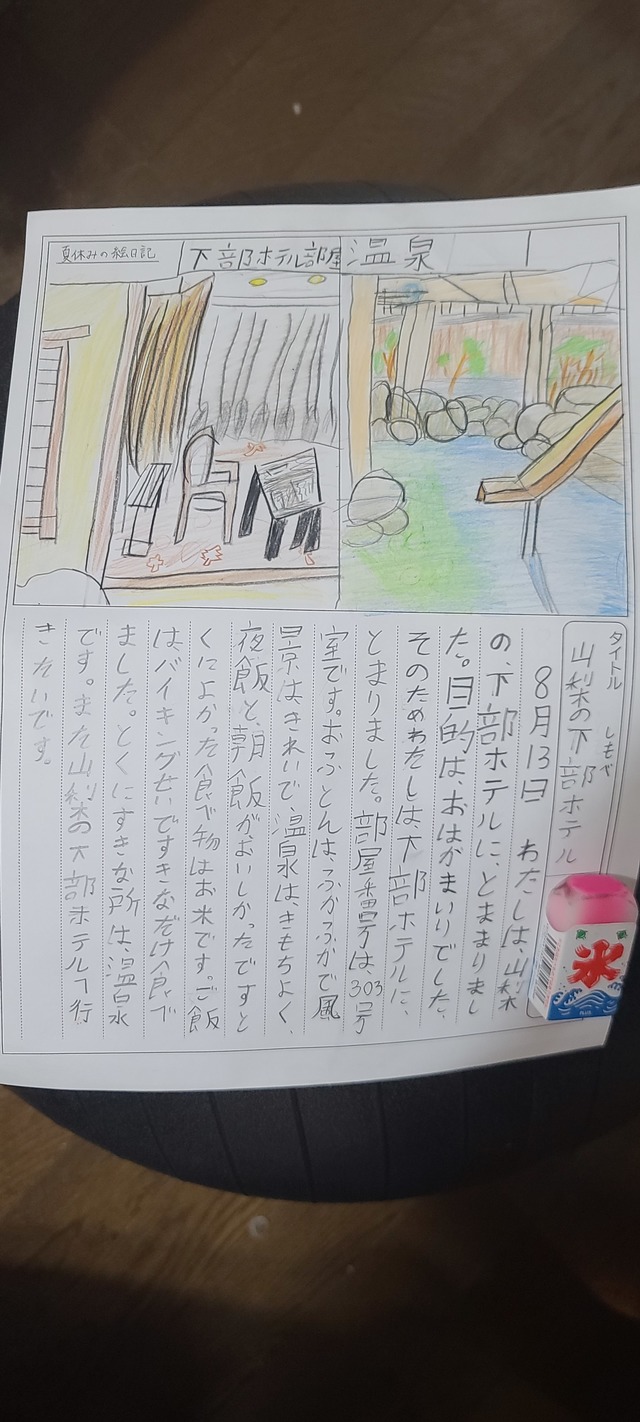 夏休みの絵日記
下部ホテル部屋
温泉
タイトル
しもべ
山梨の下部ホテル
8月13日 わたしは、山梨
の、下部ホテルに、とままりまし
た。目的は、おはがまいりでした、
そのためわたしは、下部ホテルに、
とまりました。部屋番号は、303号
室です。おふとんは、ふかふかで風
景は、きれいで、温泉は、きもちよく、
夜飯と、朝飯がおいしかったですと
くによかった食べ物はお米です。ご飯
はバイキングせいですきなだけ食べ
ました。とくにすきな所は、温泉
です。また山梨の下部ホテルへ行
きたいです。
氷
PLUS